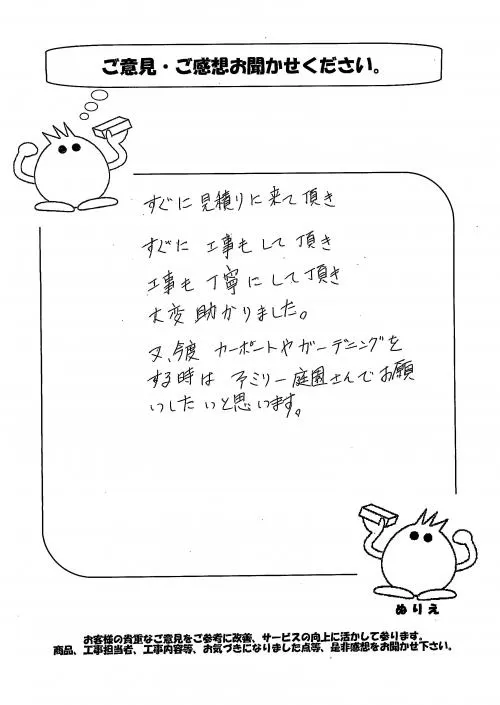 ご意見・ご感想お聞かせください。
すぐに 見積りに来て頂き
すぐに 工事もして頂き
工事も 丁寧にして頂き
大変 助かりました。
又、今度 カーポートやガーデニングを
する時は ファミリー庭園さんでお願
いしたいと思います。
ぬりえ
お客様の貴重なご意見をご参考に改善、サービスの向上に活かして参ります。
商品、工事担当者、工事内容等、お気づきになりました点等、是非感想をお聞かせ下さい。